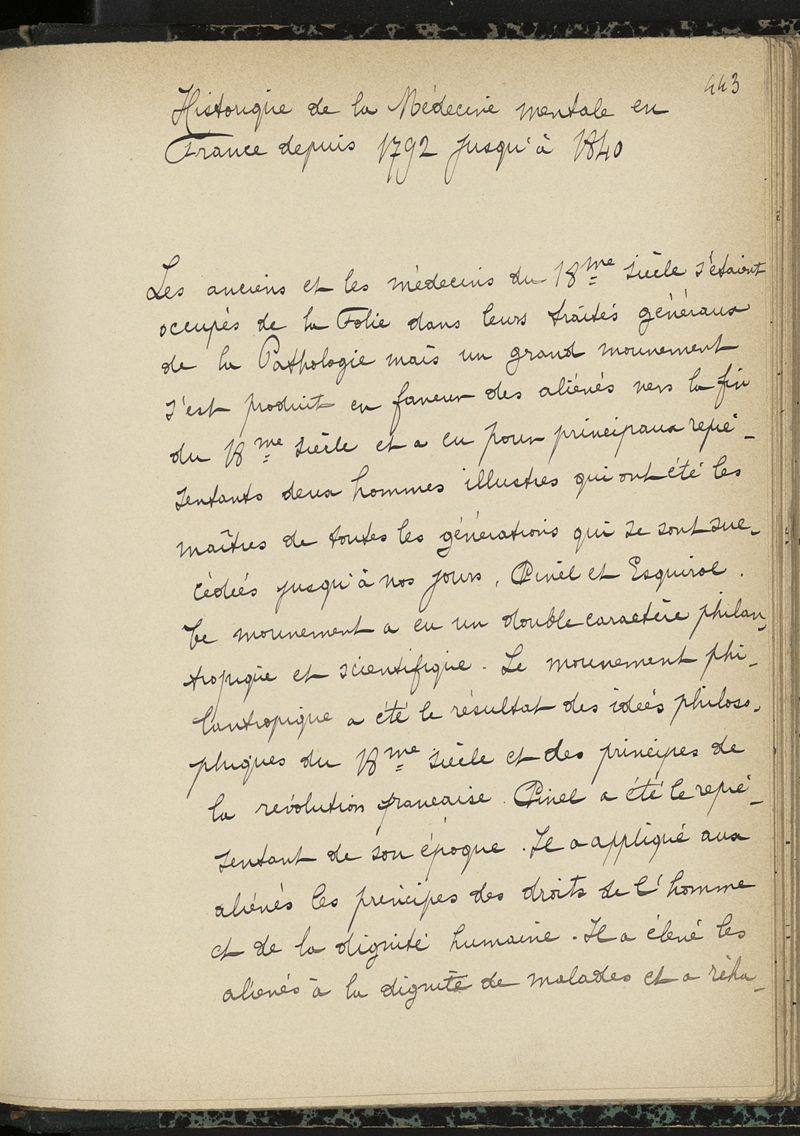 443
Historique de la Médecine mentale en
France depuis 1792 jusqu'à 1840
Les anciens et les médecins du 18me siècle s'étaient
occupés de la Folie dans leurs traités généraux
de la Pathologie mais un grand mouvement
s'est produit en faveur des aliénés vers la fin
du 18me siècle et a eu pour principaux repré-
sentants deux hommes illustres qui ont été les
maîtres de toutes les générations qui se sont suc-
cédées jusqu'à nos jours, Pinel et Esquirol.
Ce mouvement a eu un double caractère philan-
tropique et scientifique. Le mouvement phi-
lantropique a été le résultat des idées philoso-
phiques du 18me siècle et des principes de
la révolution française. Pinel a été le repré-
sentant de son époque. Il a appliqué aux
aliénés les principes des droits de l'homme
et de la dignité humaine. Il a élevé les
aliénés à la dignité de malades et a réha-